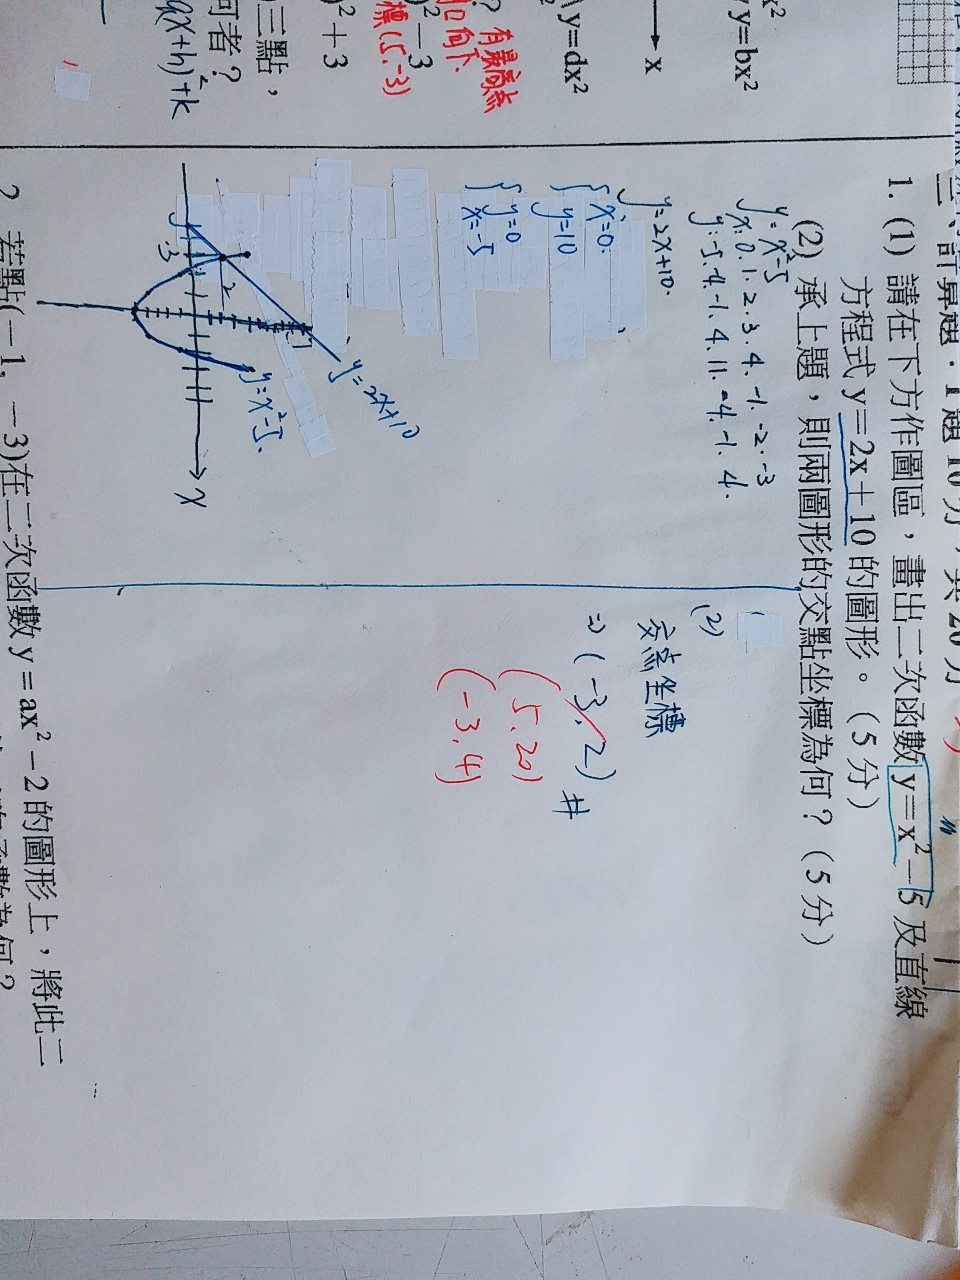 三、計算題．1題10分，共20分
1. (1) 請在下方作圖區，畫出二次函數 y=x²−5 及直線
方程式 y=2x+10 的圖形。（5分）
(2) 承上題，則兩圖形的交點坐標為何？（5分）
y=x²-5
x: 0. 1. 2. 3. 4. -1. -2. -3
y: -5. -4. -1. 4. 11. -4. -1. 4.
y=2x+10.
x=0.
y=10
y=0
x=-5
y
-3
2
y=2x+10
y=x²-5.
x
(2)
交點坐標
⇒ (-3, 2) #
(5, 20)
(-3, 4)
2. 若點(−1, −3)在二次函數 y=ax²−2 的圖形上，將此二
x²
y=bx²
x
y=dx²
? 有最高點
)²−3
口向下.
標(5,-3)
)²+3
三點，
何者？
a(x+h)²+k